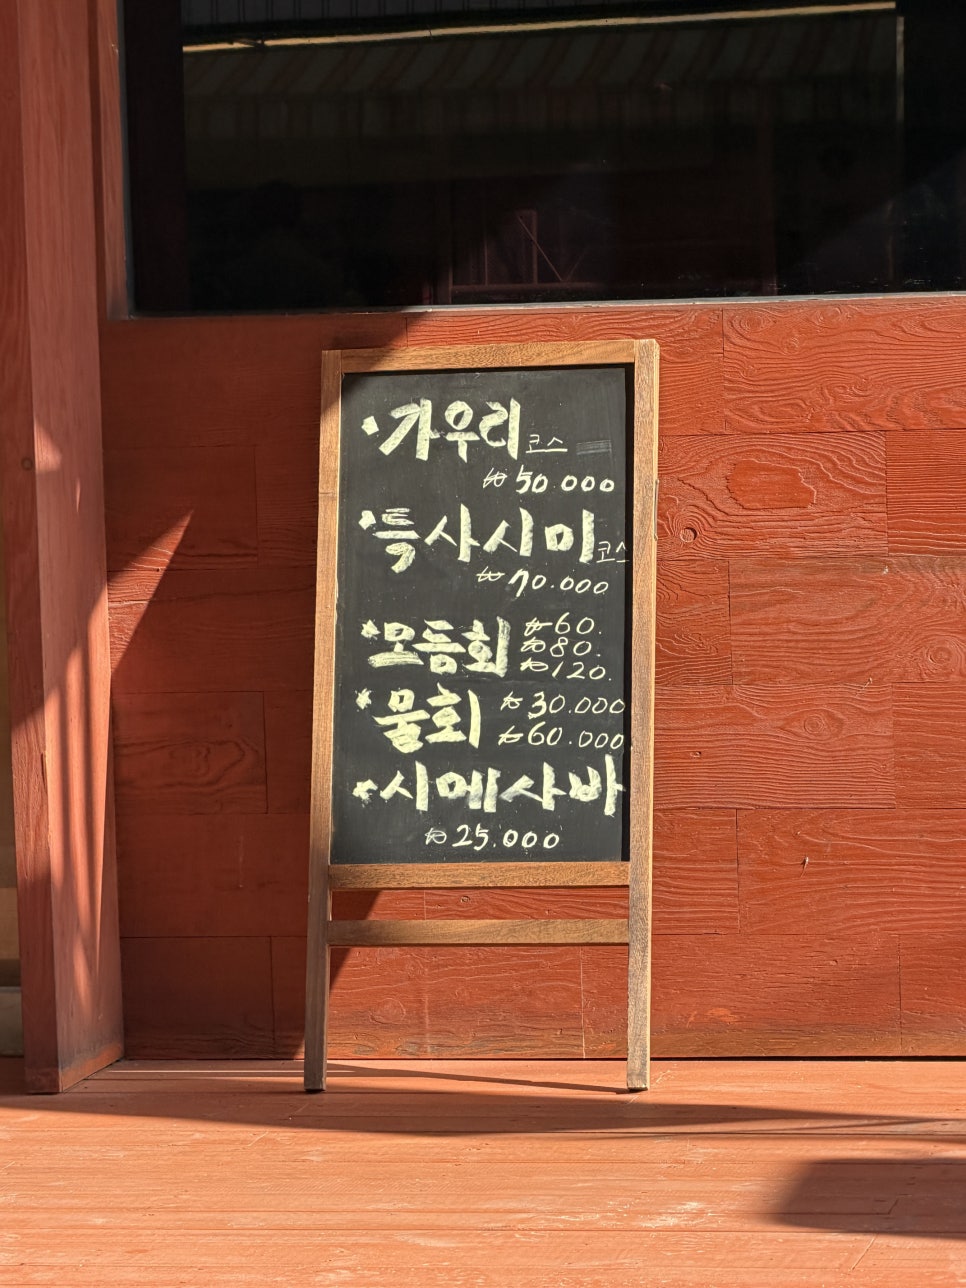 가우리 코스
₩ 50.000
특사시미 코스
₩ 70.000
모듬회 ₩60.
₩80.
₩120.
물회 ₩30.000
₩60.000
시메사바
₩25.000